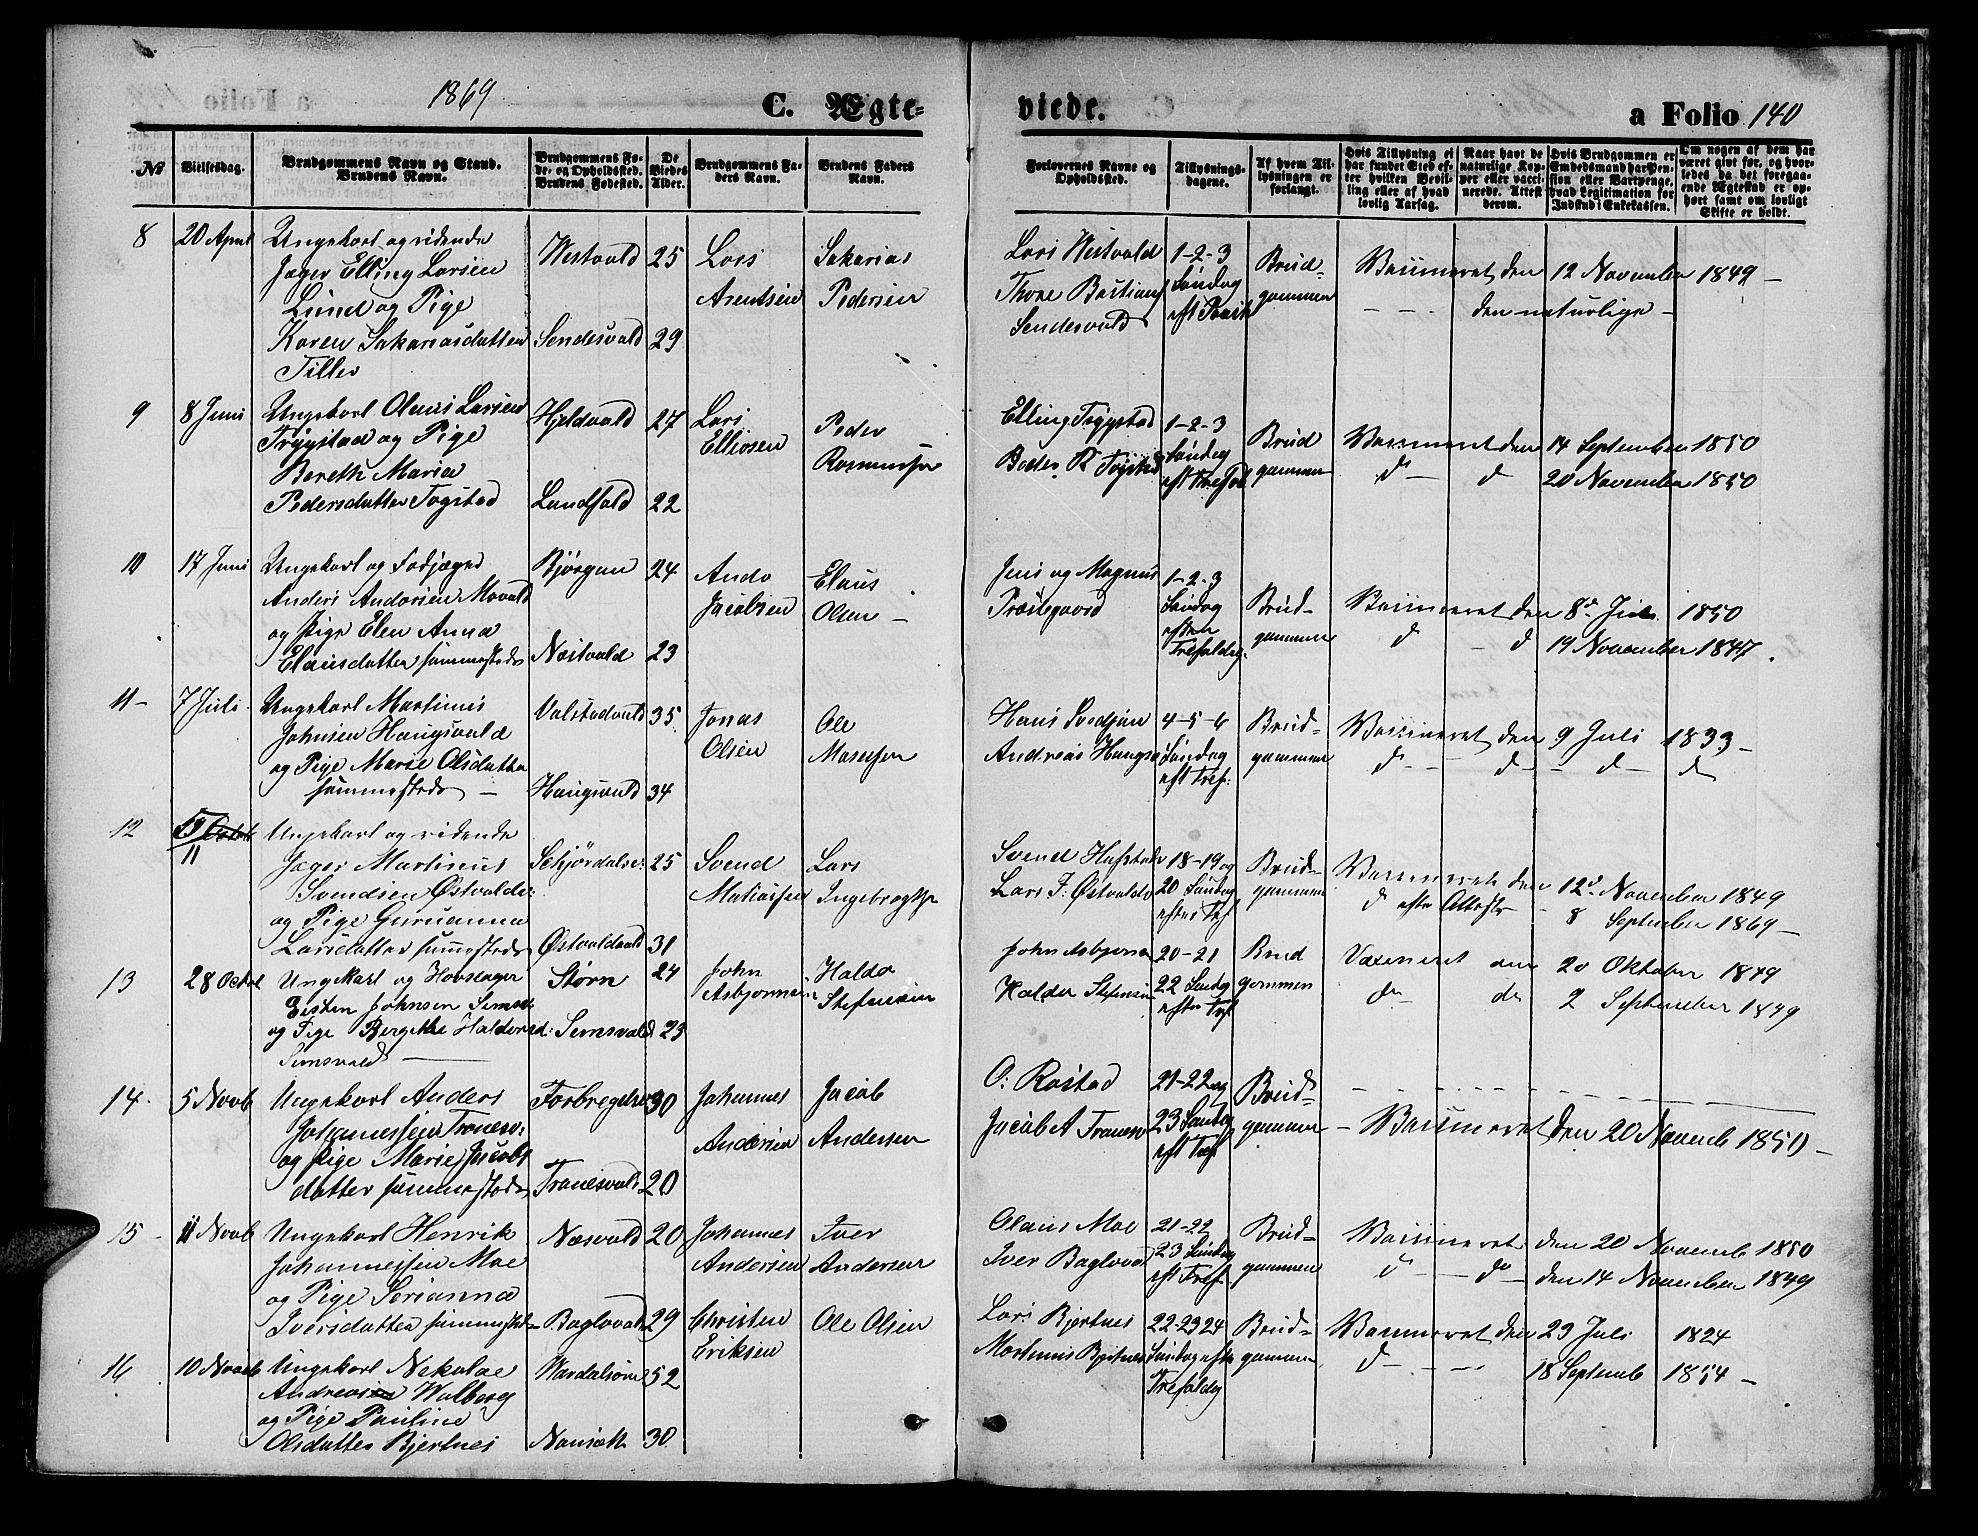 1869
C. Ægte-
viede.
a Folio 140
№
Vielsesdag.
Brudgommens Navn og Stand.
Brudens Navn.
Brudgommens Fø-
de- og Opholdssted.
Brudens Fødested.
De
Viedes
Alder.
Brudgommens Fa-
ders Navn.
Brudens Faders
Navn.
Forlovernes Navne og
Opholdssted.
Tillysnings-
dagene.
Af hvem Til-
lysningen er
forlangt.
Hvis Tillysning ei
har fundet Sted ef-
ter hvilken Bevil-
ling eller af hvad
lovlig Aarsag.
Naar havt de
naturlige Kop-
per eller vacci-
nerede. Attest
derom.
Hvis Brudgommen er
Embedsmand har Pen-
sion eller Vartpenge,
hvad Legitimation for
Indskud i Enkekassen.
Om nogen af dem har
været givt før, og hvor-
ledes da det foregaa-
ende Ægteskab er op-
hørt samt om lovligt
Skifte er holdt.
8
20 April
Ungekarl og ridende
Jæger Elling Larsen
Lund og Pige
Karen Sakariasdatter
Tiller
Westvald
Sendesvald
25
29
Lars
Arentsen
Sakarias
Pedersen
Lars Westvald
Thore Bastians
Sendesvald
1-2-3
Søndag
eft Paask
Brud-
gommen
Vaxineret den 12 November 1849 -
den naturlige -
9
8 Juni
Ungekarl Olaus Larsen
Trøgstad og Pige
Bereth Maria
Pedersdatter Togstad
Hjeldvald
Lundfald
27
22
Lars
Ellevsen
Peder
Rasmussen
Elling Togstad
Peder R Togstad
1-2-3
Søndag
eft Trefol
Brud
gommen
Vaxineret den 14 September 1850
d - d 20 November 1850
10
17 Juni
Ungekarl og Fodjæger
Anders Andorsen Movald
og Pige Elen Anna
Elausdatter sammesteds
Bjørgan
Næstvald
24
23
Ando
Jacobsen
Elaus
Olsen -
Jens og Magnus
Præstegaard
1-2-3
Søndag
efter
Trefoldig.
Brud-
gommen
Vaxineret den 8de Juli 1850
d - d 19 November 1847.
11 -
7 Juli
Ungekarl Martinus
Johnsen Haugsvald
og Pige Marie Olsdatter
sammesteds -
Valstadvald
Haugsvald
35
34
Jonas
Olsen
Ole
Masessen
Hans Svedjan
Andreas Haugs
4-5-6
Søndag
eft Tref:
Brud-
gommen
Vaxineret den 9 Juli 1833 -
d - d - d - d
12
11
Ungekarl og ridende
Jæger Martinus
Svendsen Østvald
og Pige Guruanna
Larsdatter sammesteds
Schjørdalse:
Østvaldvald
25
31
Svend
Matiassen
Lars
Ingebregts
Svend Hafstad
Lars I: Østvald
18-19 og
20 Søndag
efter Tref
Brud-
gommen
Vaxineret den 12d November 1849
d efter Attest 8 September 1869 -
13
28 Octob
Ungekarl og Hovslager
Eisten Johnsen Sems
og Pige Bergethe Haldorsd:
Semsvald
Størn
Semsvald
24
23
John
Asbjørnsen
Haldo
Stefensen
John Asbjørnsen
Haldor Stefensen
20-21
22 Søndag
efter Tref
Brud
gommen
Vaxineret den 20 Oktober 1849
do do 2 September 1849
14.
5 Novb
Ungekarl Anders
Johannessen Tranesv:
og Pige Marie Jacobs
datter sammesteds
Forbregdsv
Tranesvald
30
20
Johannes
Andersen
Jacob
Andersen
O: Rostad
Jacob A Tranesv
21-22 og
23 Søndag
eft Tref
Brud-
gommen
- Vaxineret den 20 Novemb 1850 -
15 -
11 Novb
Ungekarl Henrik
Johannessen Moe
og Pige Serianna
Iversdatter sammesteds
Næsvald
Baglovald
20
29
Johannes
Andersen
Iver
Andersen
Olaus Moe
Iver Baglovald
21-22
23 Søndag
eft Tref
Brud-
gommen
Vaxineret den 20 Novemb 1850
d - - do - den 14 November 1849
16
10 Novb
Ungekarl Nekolae
Andreas Walberg
og Pige Pauline
Olsdatter Bjertnes
Værdalsøre
Næssæth
52
30
Christen
Eriksen
Ole Olsen
Lars Bjertnes
Martenus Bjertnes
22-23 24
Søndag efter
Trefoldig
Brud-
gommen
Vaxineret den 23 Juli 1824
d - - - 18 Septemb 1854 -